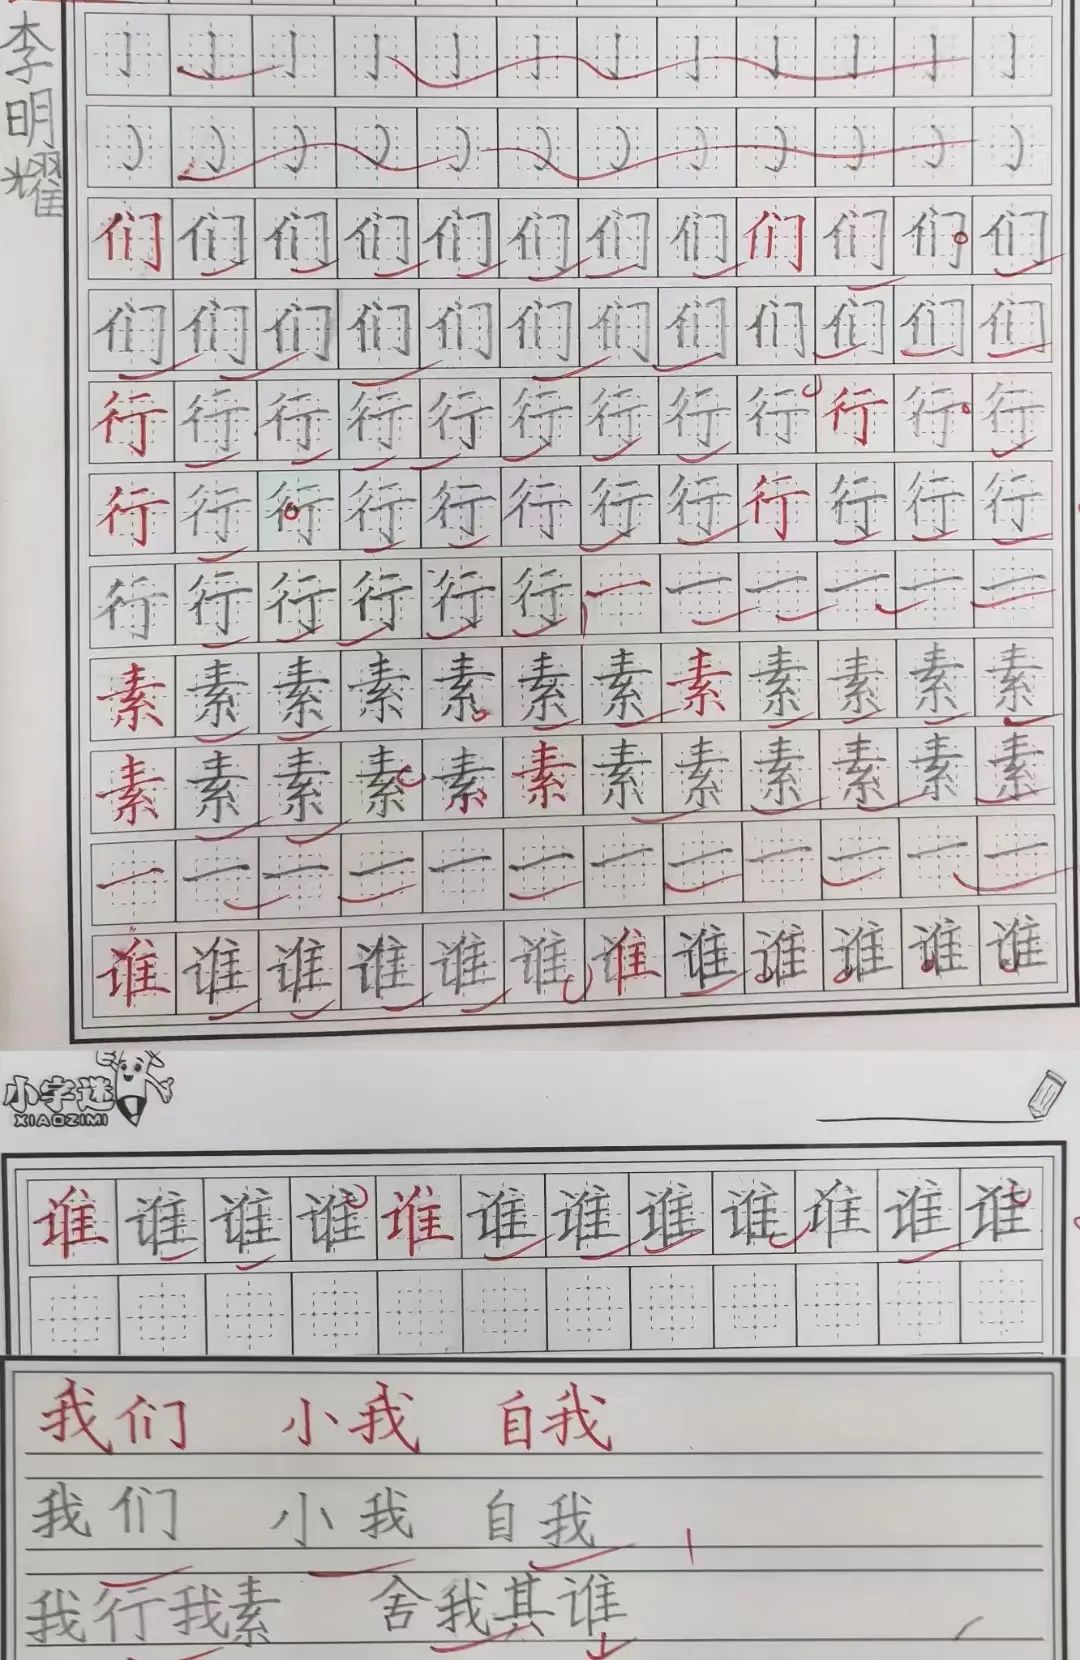 李明耀
们们们们们们们们们们们们
们们们们们们们们们们们们
行行行行行行行行行行行行
行行行行行行行行行行行行
行行行行行行一一一一一一
素素素素素素素素素素素素
素素素素素素素素素素素素
一一一一一一一一一一一一
谁谁谁谁谁谁谁谁谁谁谁谁
小字迷
XIAOZIMI
谁谁谁谁谁谁谁谁谁谁谁谁
我们 小我 自我
我们 小我 自我
我行我素 舍我其谁